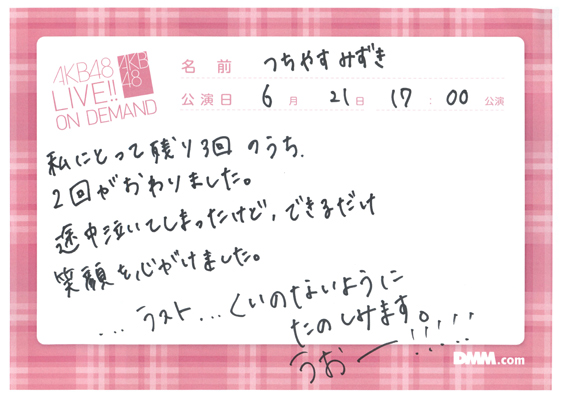 AKB48
LIVE!!
ON DEMAND
AKB
48
名前 つちやすみずき
公演日 6月 21日 17:00 公演
私にとって残り3回のうち、
2回がおわりました。
途中泣いてしまったけど、できるだけ
笑顔を心がけました。
...ラスト...くいのないように
たのしみます。
うおー!!!!!
DMM.com